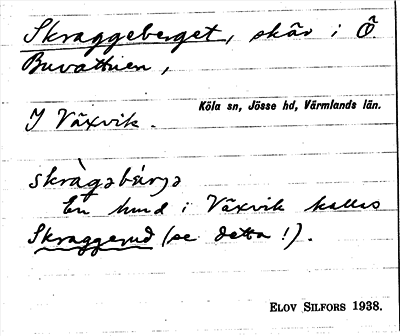 Skraggeberget, skär i Ö.
Buvattnen,
I Växvik.
Köla sn, Jösse hd, Värmlands län.
skràgəbærjə
En hund i Växvik kallas
Skraggerud (se detta!).
ELOV SILFORS 1938.